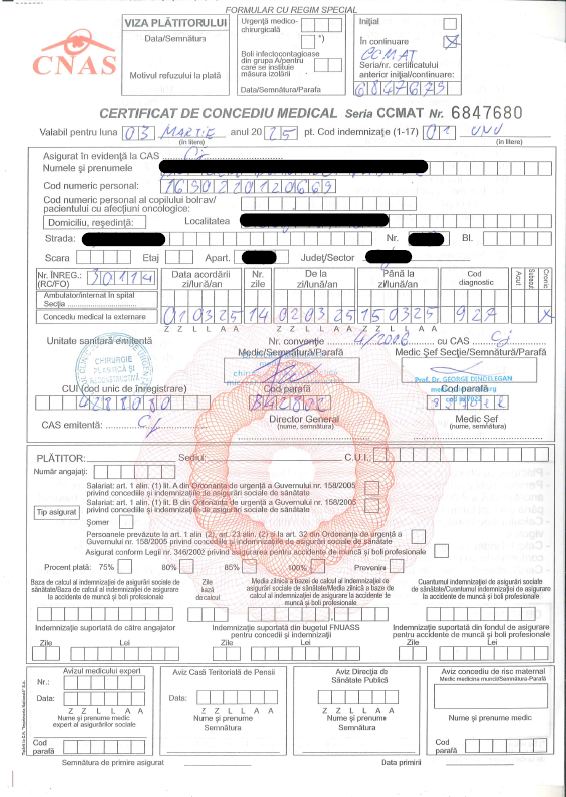 FORMULAR CU REGIM SPECIAL
CNAS
VIZA PLĂTITORULUI
Data/Semnătura
Motivul refuzului la plată
Urgență medico-chirurgicală
*)
Boli infectocontagioase din grupa A/pentru care se instituie măsura izolării
Data/Semnătura/Parafa
Inițial
În continuare X
CCMAT
Seria/nr. certificatului anterior inițial/continuare:
6847679
CERTIFICAT DE CONCEDIU MEDICAL Seria CCMAT Nr. 6847680
Valabil pentru luna 03 MARTIE anul 2025 pt. Cod indemnizație (1-17) 01 UNU
(în litere) (în litere)
Asigurat în evidență la CAS Cj
Numele și prenumele
Cod numeric personal:
Cod numeric personal al copilului bolnav/pacientului cu afecțiuni oncologice:
Domiciliu, reședință: Localitatea
Strada: Nr. Bl.
Scara Etaj Apart. Județ/Sector
Nr. ÎNREG.: (RC/FO) 30114
Data acordării zi/lună/an Nr. zile De la zi/lună/an Până la zi/lună/an Cod diagnostic Acut Subacut Cronic
Ambulator/internat în spital
Secția
Concediu medical la externare 010325 14 020325 150325 927 X
Z Z L L A A Z Z L L A A Z Z L L A A
Unitate sanitară emitentă Nr. convenție 4/2006 cu CAS Cj
CHIRURGIE PLASTICĂ ȘI
Medic/Semnătură/Parafă Medic Șef Secție/Semnătură/Parafă
Prof. Dr. GEORGE DINDELEGAN
CUI (cod unic de înregistrare) Cod parafă Cod parafă
4288080
CAS emitentă: Cj Director General Medic Șef
(nume, semnătura) (nume, semnătura)
PLĂTITOR: Sediul C.U.I.
Număr angajați:
Tip asigurat
Salariat: art. 1 alin. (1) lit. A din Ordonanța de urgență a Guvernului nr. 158/2005 privind concediile și indemnizațiile de asigurări sociale de sănătate
Salariat: art. 1 alin. (1) lit. B din Ordonanța de urgență a Guvernului nr. 158/2005 privind concediile și indemnizațiile de asigurări sociale de sănătate
Șomer
Persoanele prevăzute la art. 1 alin. (2), art. 23 alin. (2) și la art. 32 din Ordonanța de urgență a Guvernului nr. 158/2005 privind concediile și indemnizațiile de asigurări sociale de sănătate
Asigurat conform Legii nr. 346/2002 privind asigurarea pentru accidente de muncă și boli profesionale
Procent plată: 75% 80% 85% 100% Prevenire
Baza de calcul al indemnizației de asigurări sociale de sănătate/Baza de calcul al indemnizației de asigurare la accidente de muncă și boli profesionale
Zile bază de calcul
Media zilnică a bazei de calcul al indemnizației de asigurări sociale de sănătate/Media zilnică a bazei de calcul al indemnizației de asigurare la accidente de muncă și boli profesionale
Cuantumul indemnizației de asigurări sociale de sănătate/Cuantumul indemnizației de asigurare la accidente de muncă și boli profesionale
Indemnizație suportată de către angajator
Indemnizație suportată din bugetul FNUASS pentru concedii și indemnizații
Indemnizație suportată din fondul de asigurare pentru accidente de muncă și boli profesionale
Zile Lei Zile Lei Zile Lei
Avizul medicului expert
Nr.:
Data:
Z Z L L A A
Nume și prenume medic expert al asigurărilor sociale
Cod parafă
Aviz Casă Teritorială de Pensii
Data:
Z Z L L A A
Nume și prenume
Semnătura
Aviz Direcția de Sănătate Publică
Z Z L L A A
Nume și prenume
Semnătura
Aviz concediu de risc maternal
Medic medicina muncii/Semnătura-Parafă
Nume și prenume medic
Cod parafă
Semnătura de primire asigurat Data primirii